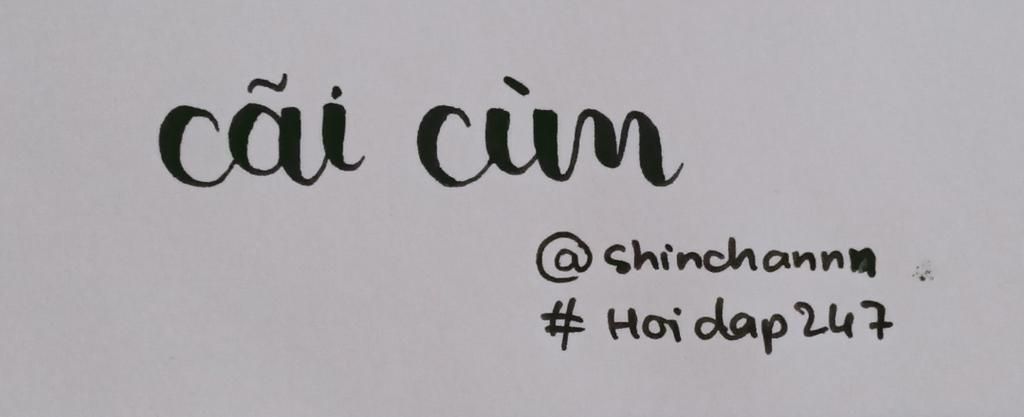 cãi cùn
@shinchannn
#Hoidap247